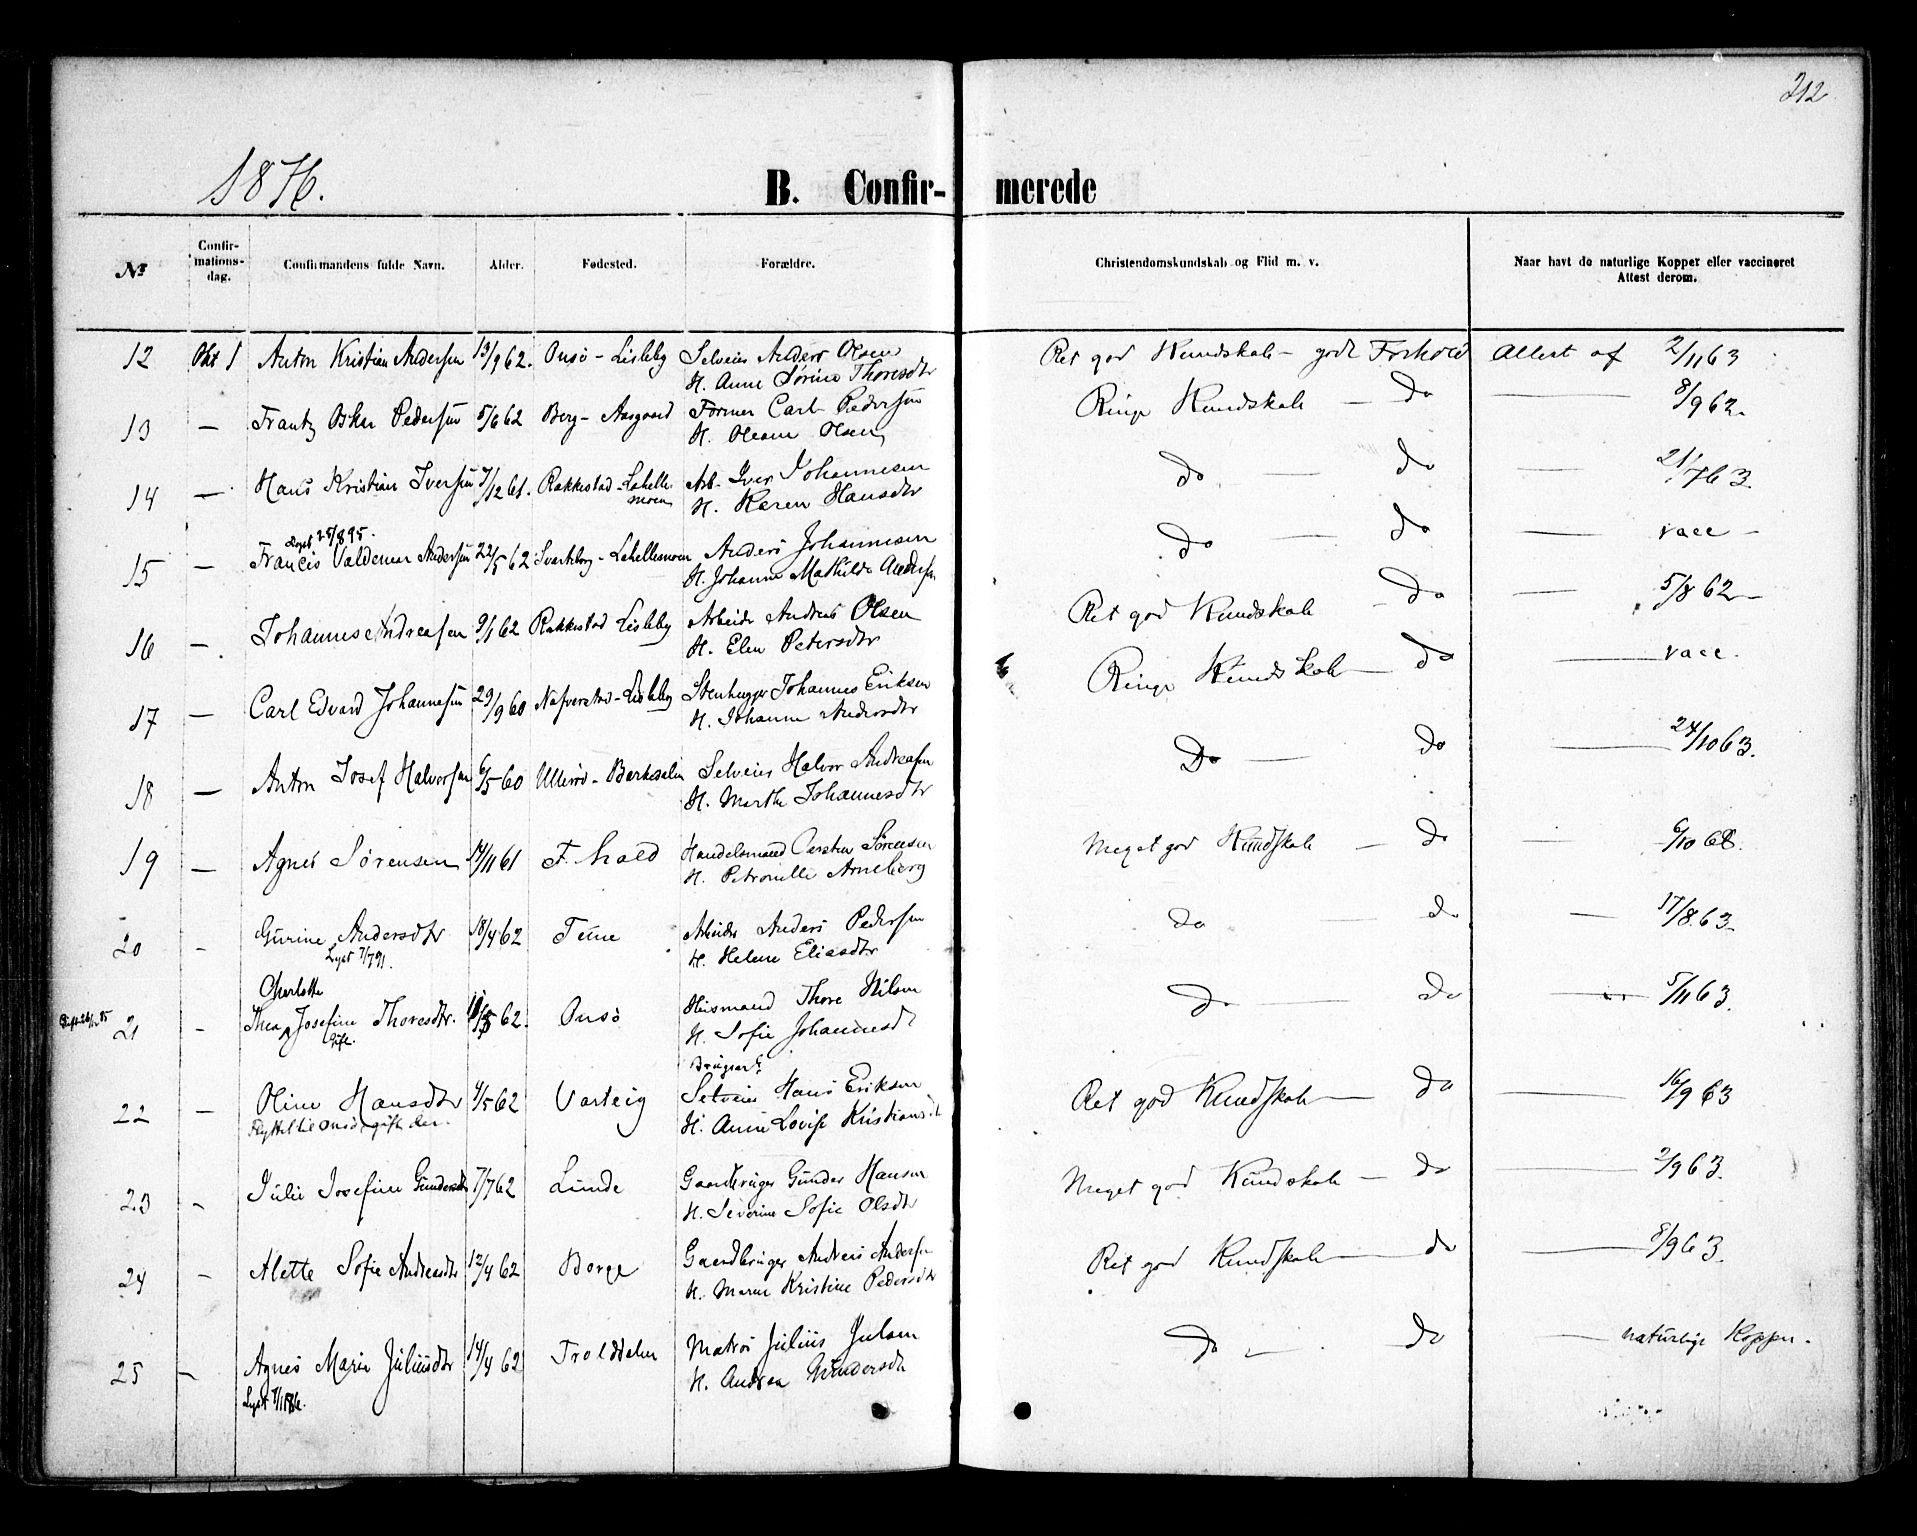 212
1876.
B. Confir- merede
№
Confir-
mations-
dag.
Confirmandens fulde Navn.
Alder.
Fødested.
Forældre.
Christendomskundskab og Flid m. v.
Naar havt de naturlige Kopper eller vaccineret
Attest derom.
12 Okt 1 Anton Kristian Andersen 13/9 62. Onsö - Lisleby Selveier Anders Olsen Ret god Kundskab - godt Forhold Attest af 2/11 63
H. Anne Sørine Thoresdtr
13 — Frantz Oskar Pedersen 5/6 62 Berg - Aasgaard Former Carl Pedersen Ringe Kundskab — do — 8/9 62.
H. Olsen
14 — Hans Kristian Iversen 7/12 61. Rakkestad - Lahelle- Arb. Iver Johannesen do — do — 21/7 63.
moen H. Karen Hansdtr
Lyst 25/8 95.
15 — Francis Valdemar Andersen 22/5 62 - Lahellemoen Anders Johannesen do — do — vacc -
H. Johanne Mathilde Andersen
16 — Johannes Andreasen 9/1 62 Rakkestad Lisleby Arbeider Andreas Olsen Ret god Kundskab - do — 5/8 62 -
H. Elen Petersdtr
17 — Carl Edvard Johannesen 29/9 60 Nafverstad - Lisleby Stenhugger Johannes Eriksen Ringe Kundskab — do — vacc.
H. Johanne Andersdtr
18 — Anton Josef Halvorsen 6/5 60 Ullerød - Selveier Halvor Andreasen Do — do — 24/10 63.
H. Marthe Johannesdtr
19 — Agnes Sørensen 14/11 61 F. hald Handelsmand Carsten Sörensen Meget god Kundskab — do — 6/10 68.
H. Petronille Arneberg
20 - Gurine Andersdtr 18/4 62 Tune Arbeider Anders Pedersen do — do — 17/8 63.
Lyst 7/7 91. H. Helene Eliasdtr
Charlotte
21 - Thea Josefine Thoresdtr. 62. Onsö Husmand Thore Nilsen do — do — 5/11 63.
Gift. H. Sofie Johannesdt
22 - Oline Hansdtr 4/5 62 Varteig Selveier Hans Eriksen Ret god Kundskab — do — 16/9 63
Flyttet til Onsö, gift der. H. Anne Lovise Kristiansdt
23 - Julie Josefine Gundersdtr 7/7 62 Lunde Gaardbruger Gunder Hansen Meget god Kundskab - do — 2/9 63.
H. Severine Sofie Olsdtr
24 - Alette Sofie Andreasdtr 12/4 62 Borge Gaardbruger Andreas Andersen Ret god Kundskab — do — 8/9 63.
H. Maren Kristine Pedersdtr
25 - Agnes Marie Juliusdtr 14/4 62 Trolddalen Matros Julius Julsen do - do — naturlige Kopper.
H. Andrea Gundersdt